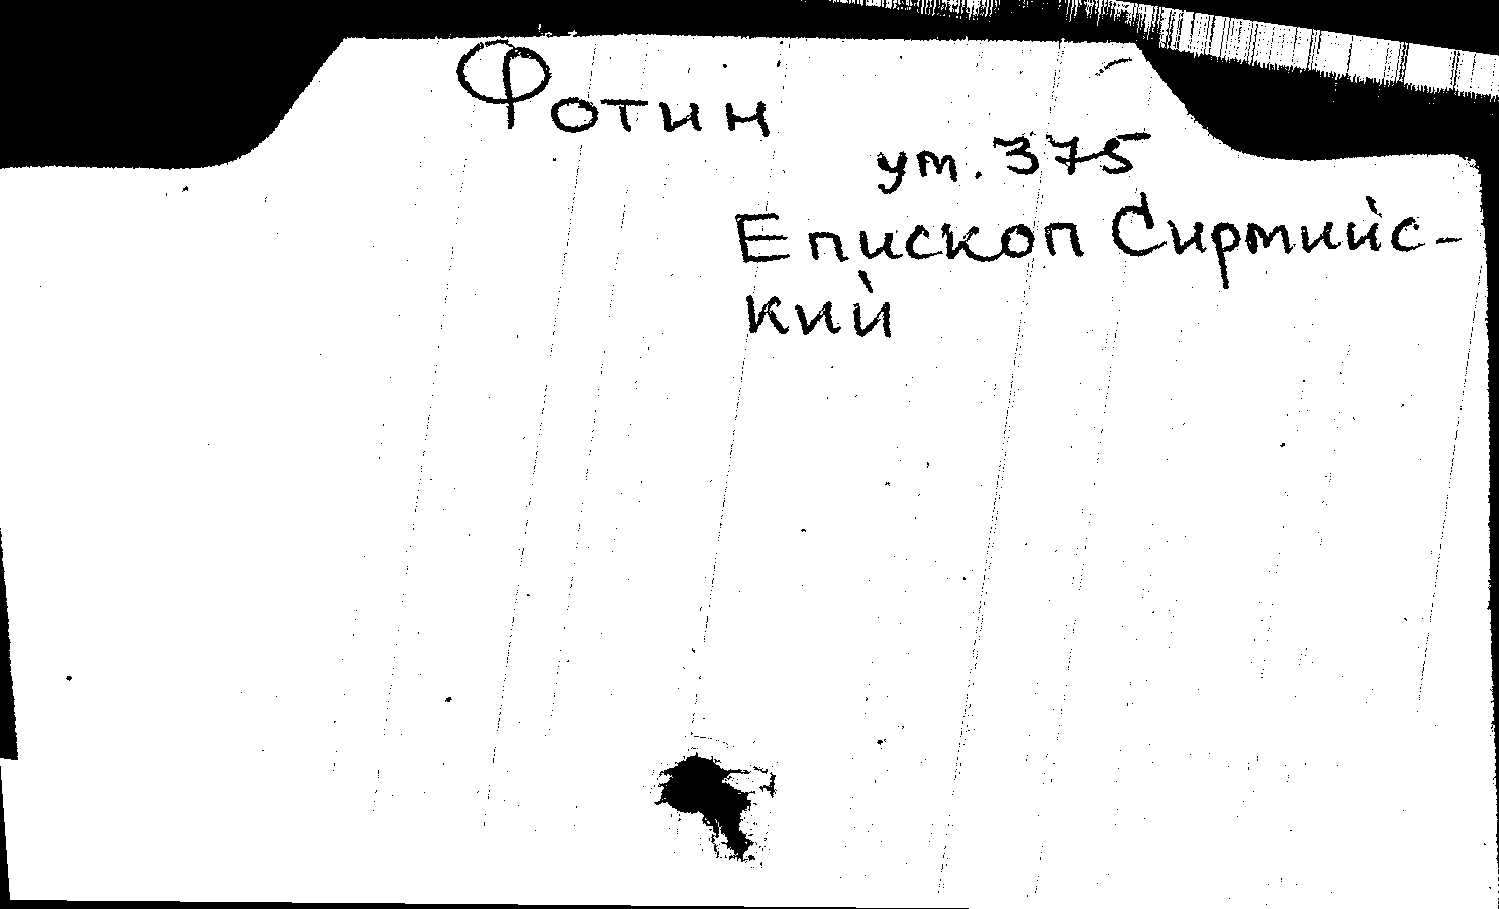 Фотин
ум. 375
Епископ Сирмийс-
кий